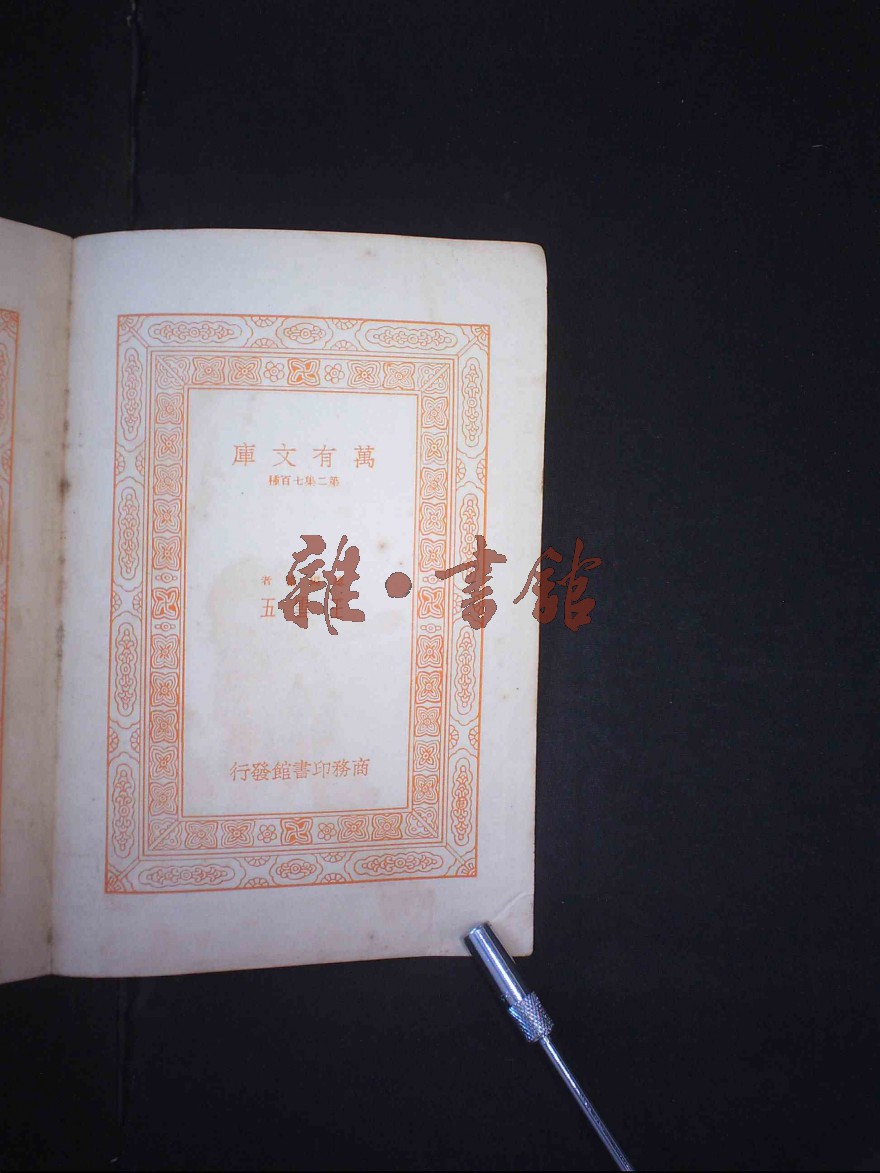 萬有文庫
第二集七百種
者
五
商務印書館發行
雜·書館